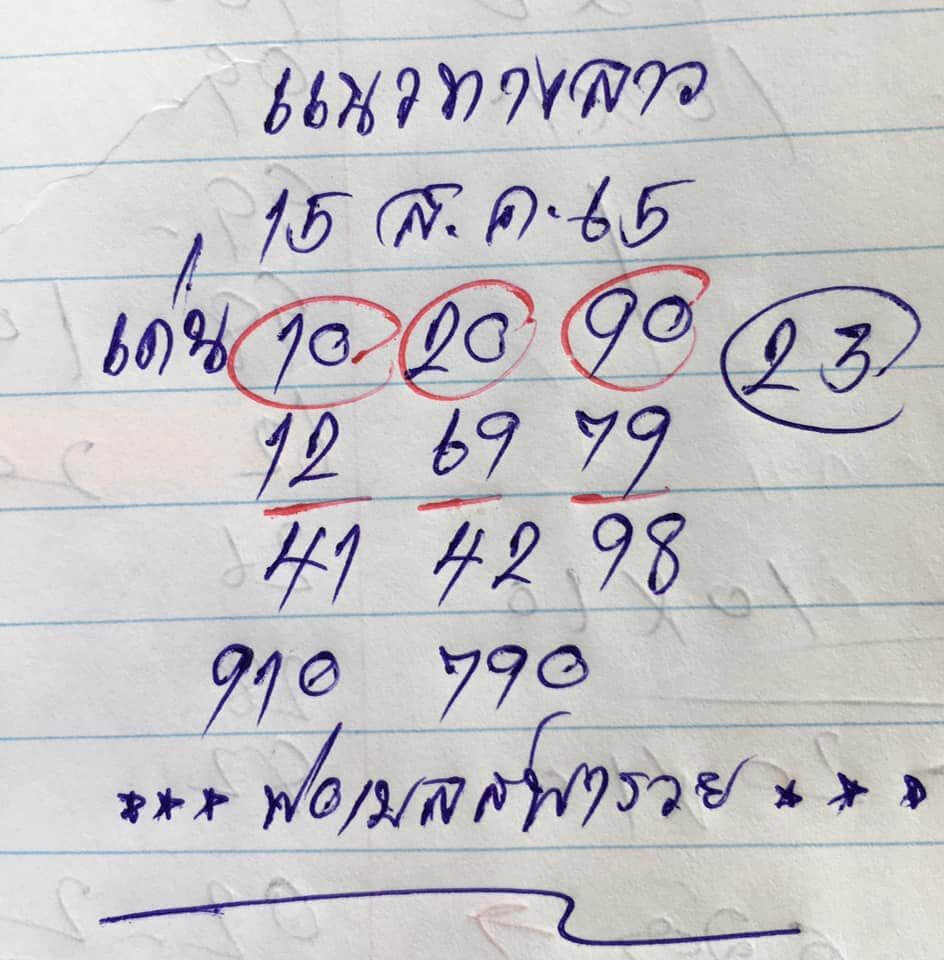 แนวทางลาว
15 ส.ค.65
เด่น 10 20 90 23
12 69 79
41 42 98
910 790
*** พารวย ***